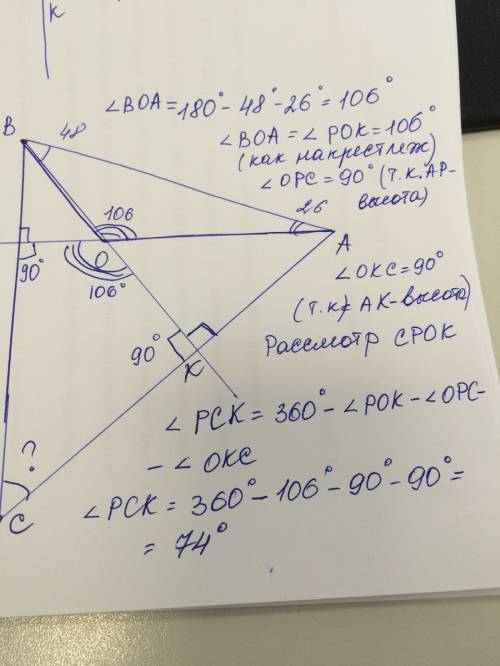 к
∠BOA=180°-48°-26°=106°
∠BOA=∠POK=106°
(как накрестлеж)
∠OPC=90° (т.к. AP-
высота)
B
48
106
26
A
O
90°
106°
∠OKC=90°
(т.к. AK-высота)
Рассмотр CPOK
90°
K
∠PCK=360°-∠POK-∠OPC-
-∠OKC
?
C
∠PCK=360°-106°-90°-90°=
=74°